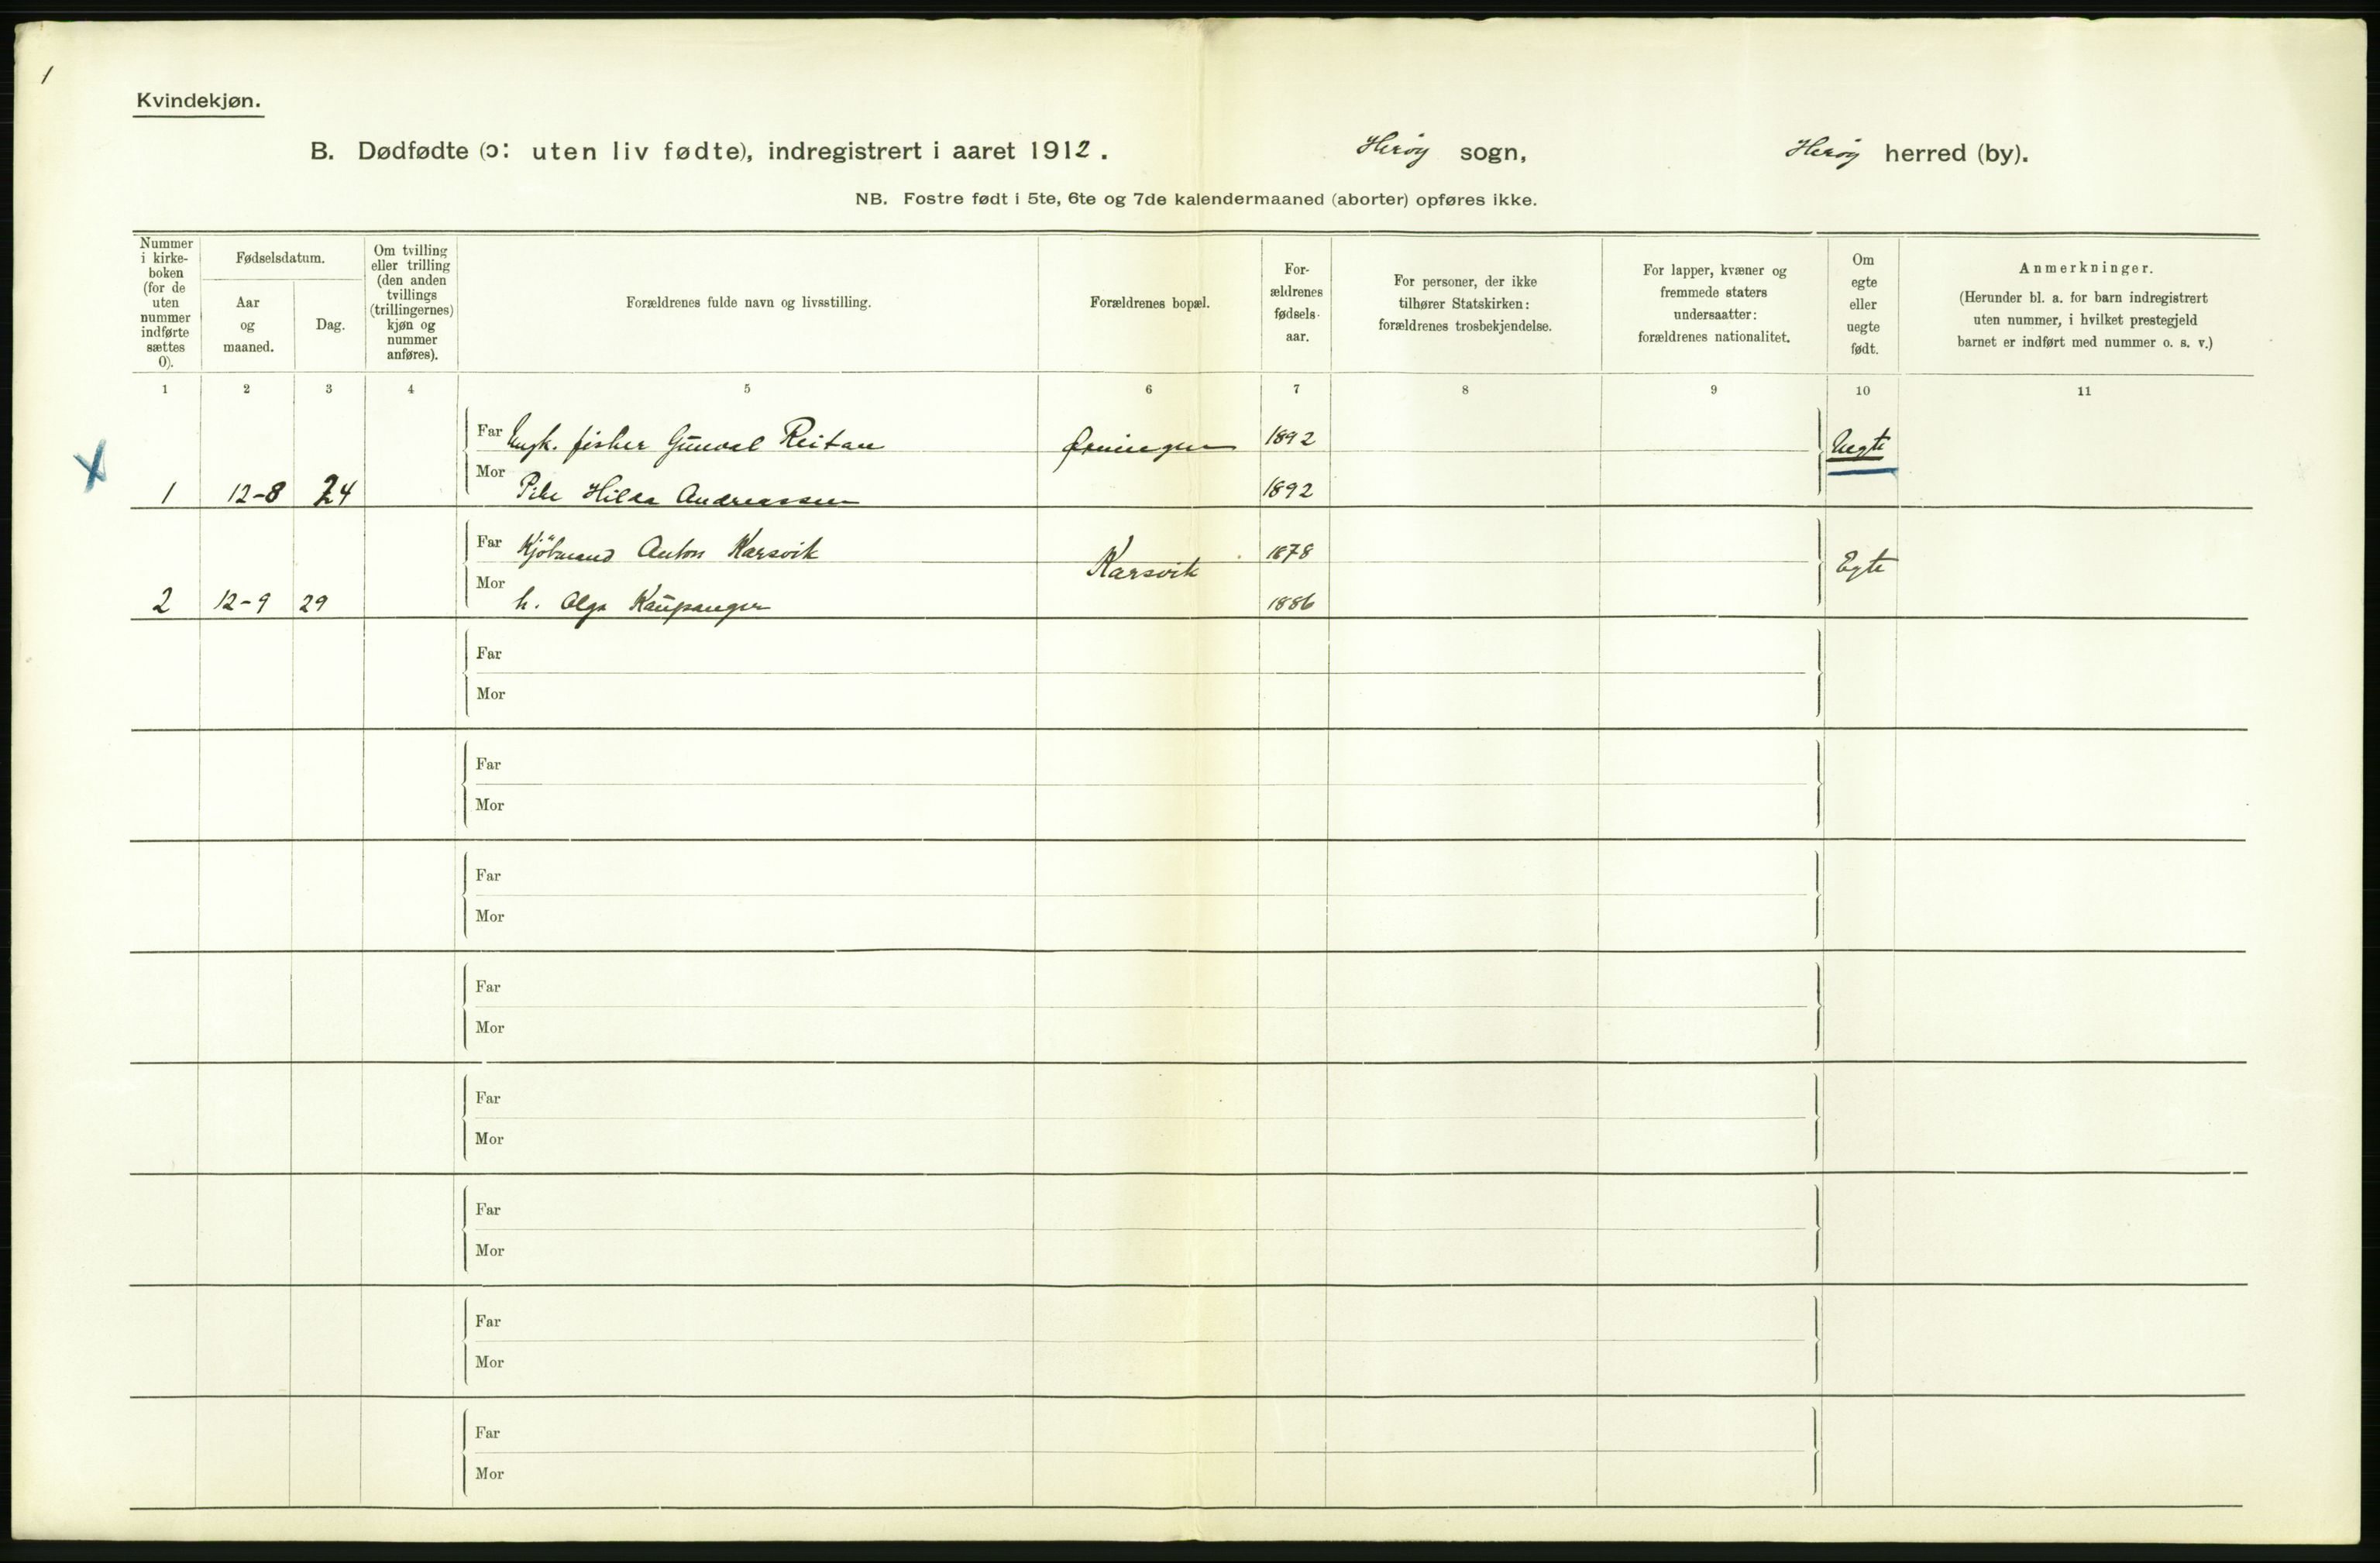 1
Kvindekjøn.
B. Dødfødte (ɔ: uten liv fødte), indregistrert i aaret 1912. Herøy sogn, Herøy herred (by).
NB. Fostre født i 5te, 6te og 7de kalendermaaned (aborter) opføres ikke.
Nummer i kirke-boken (for de uten nummer indførte sættes 0).
Fødselsdatum.
Aar og maaned.
Dag.
Om tvilling eller trilling (den anden tvillings (trillingernes) kjøn og nummer anføres).
Forældrenes fulde navn og livsstilling.
Forældrenes bopæl.
For-ældrenes fødsels-aar.
For personer, der ikke tilhører Statskirken: forældrenes trosbekjendelse.
For lapper, kvæner og fremmede staters undersaatter: forældrenes nationalitet.
Om egte eller uegte født.
Anmerkninger.
(Herunder bl. a. for barn indregistrert uten nummer, i hvilket prestegjeld barnet er indført med nummer o. s. v.)
1 2 3 4 5 6 7 8 9 10 11
Far Ungk. fisker Gunval Reitan 1892 Uegte
X 1 12-8 24 Mor Pike Hilda Andreassen 1892
Far Kjöbmand Anton Karsvik Karsvik 1878 Egte
2 12-9 29 Mor h. Olga Kaupanger 1886
Far
Mor
Far
Mor
Far
Mor
Far
Mor
Far
Mor
Far
Mor
Far
Mor
Far
Mor